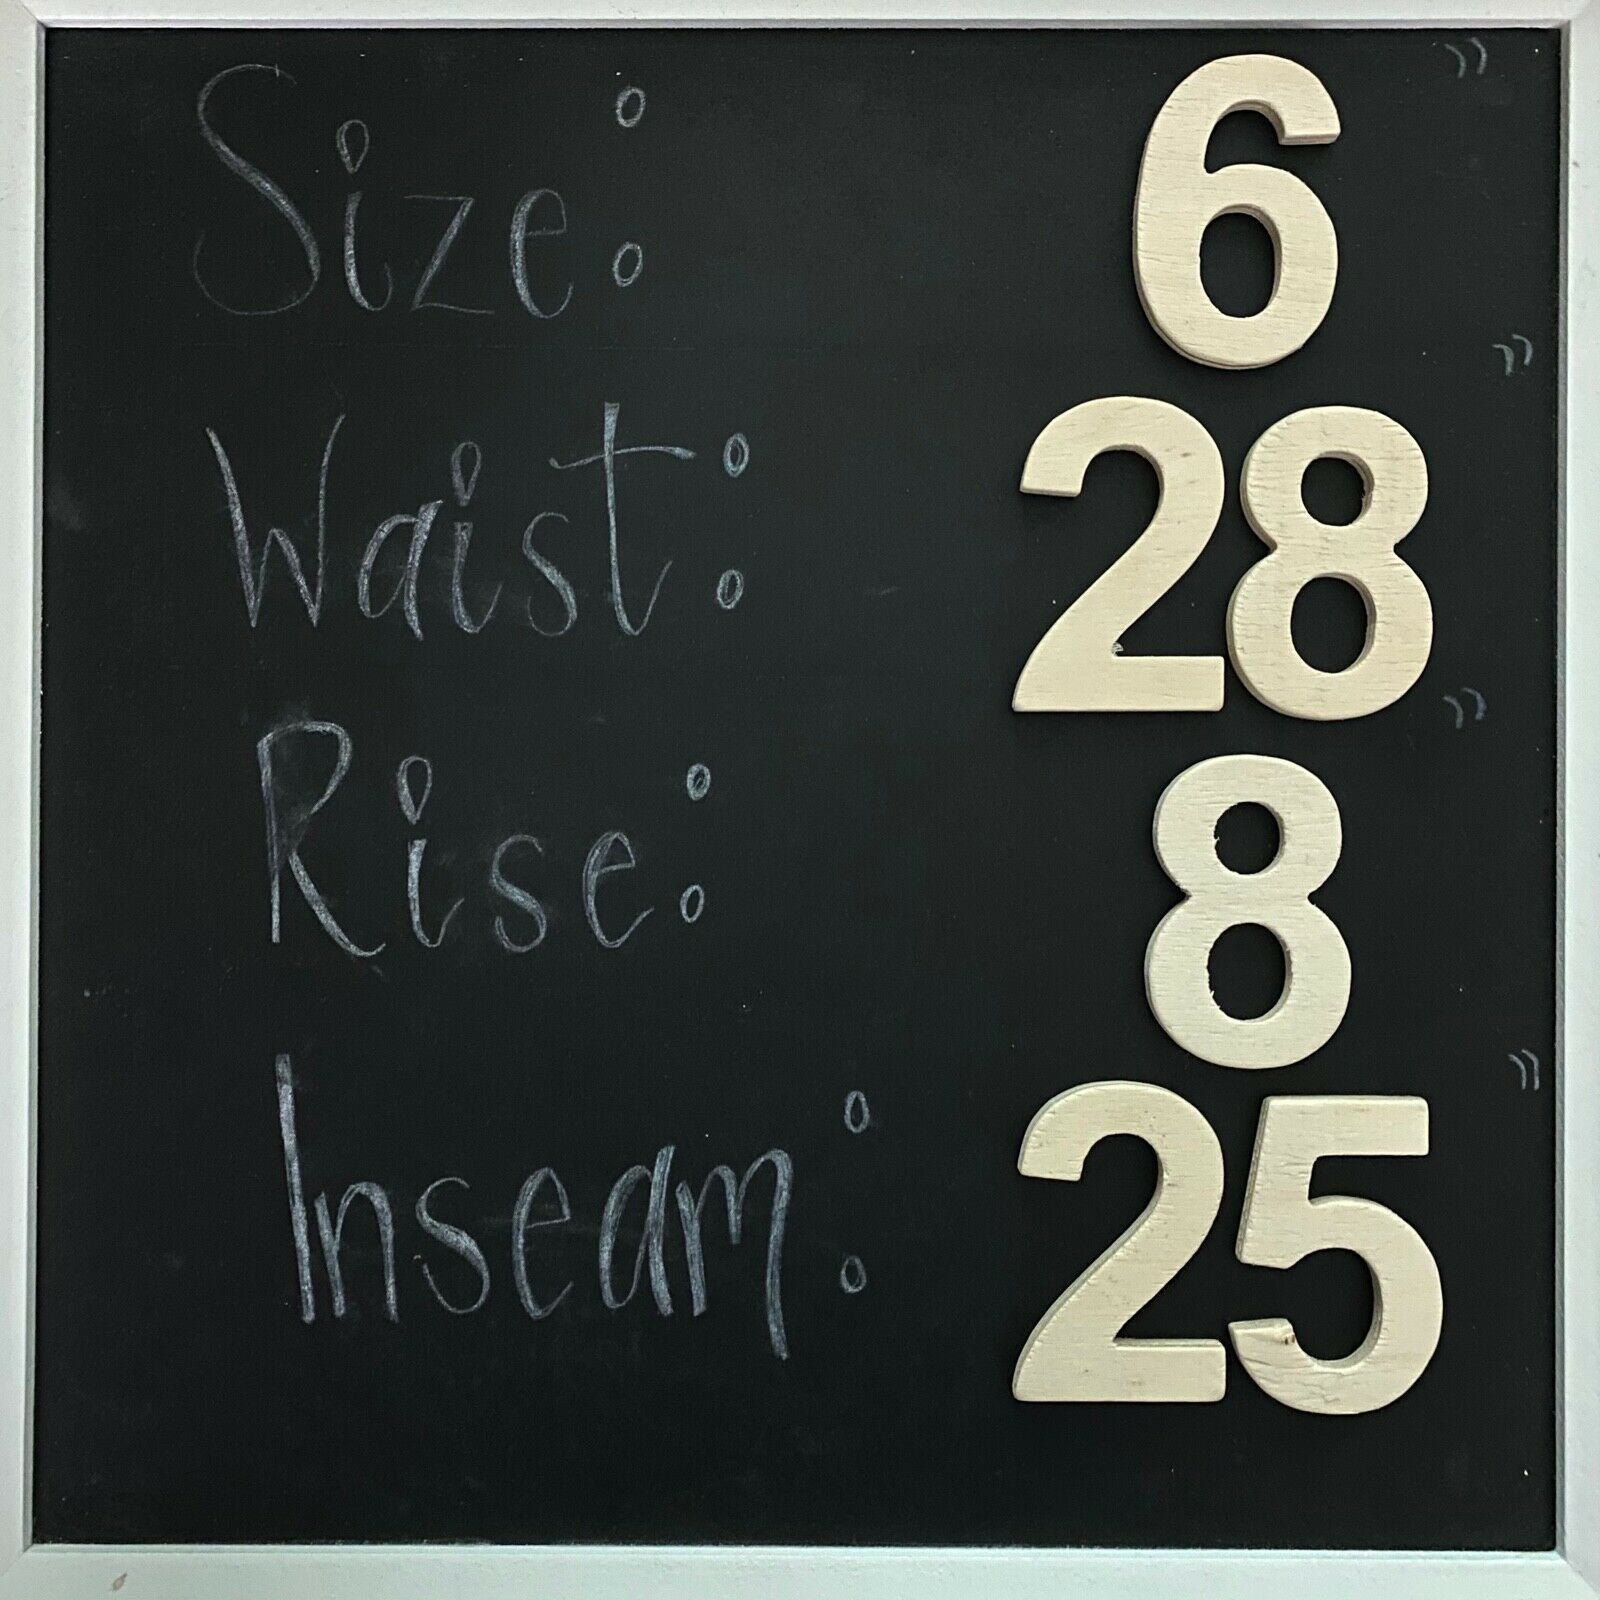 Size: 6"
Waist: 28"
Rise: 8"
Inseam: 25"